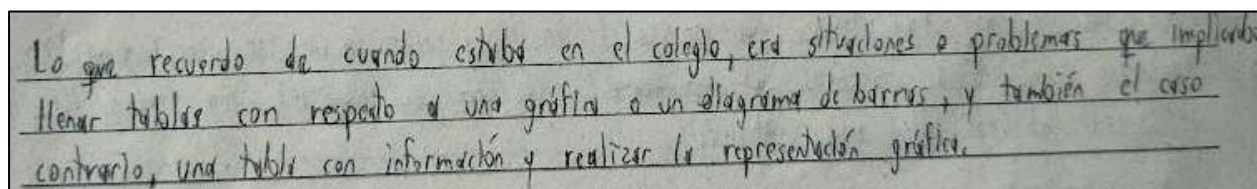 Lo que recuerdo de cuando estaba en el colegio, era situaciones o problemas que implicaba
llenar tablas con respecto a una gráfica o un diagrama de barras, y también el caso
contrario, una tabla con información y realizar la representación gráfica.